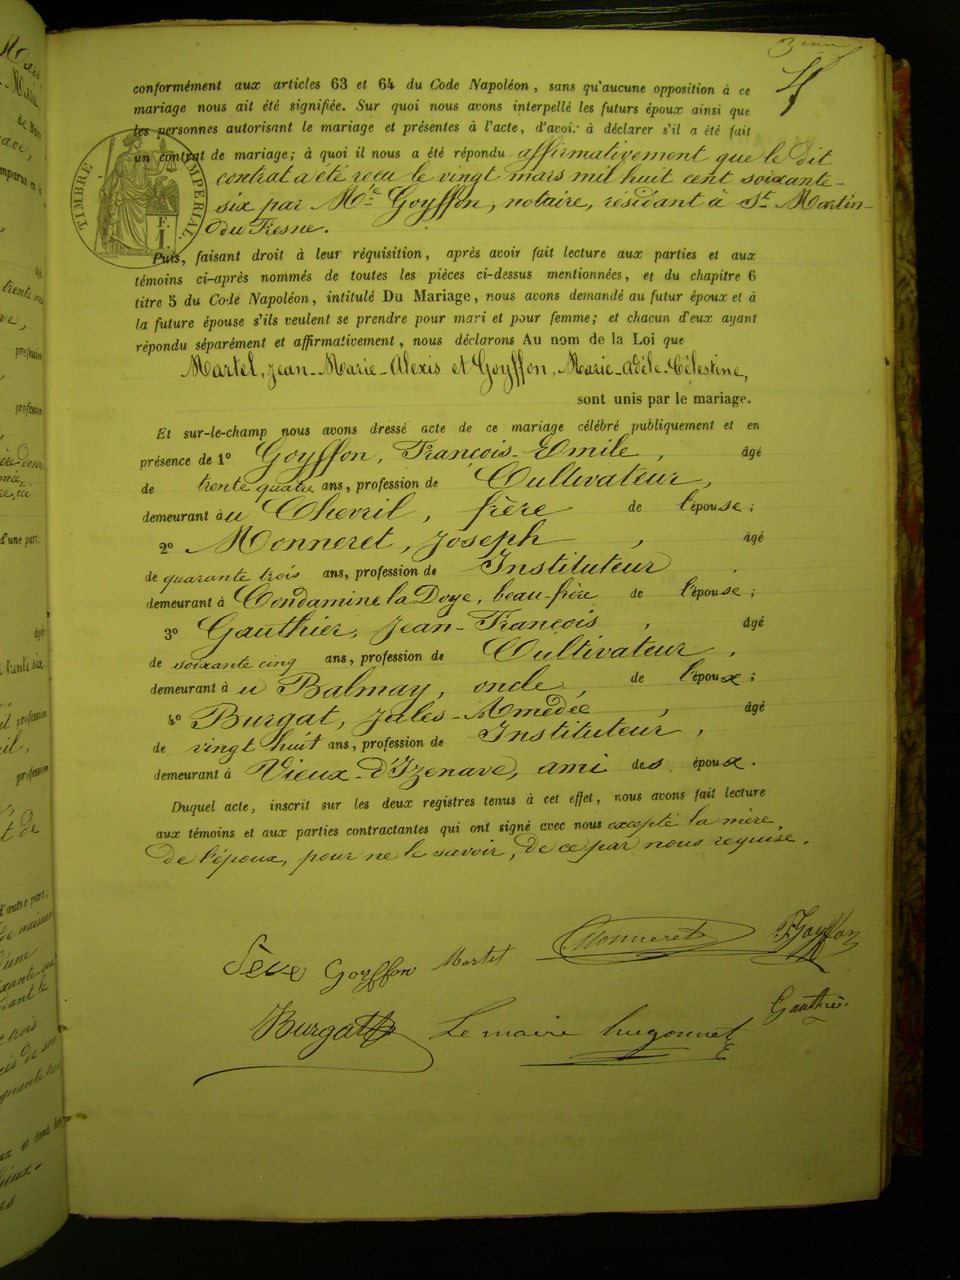 conformément aux articles 63 et 64 du Code Napoléon, sans qu'aucune opposition à ce
mariage nous ait été signifiée. Sur quoi nous avons interpellé les futurs époux ainsi que
les personnes autorisant le mariage et présentes à l'acte, d'avoir à déclarer s'il a été fait
un contrat de mariage; à quoi il nous a été répondu affirmativement que le dit
contrat a été reçu le vingt mars mil huit cent soixante-
six par Me Goyffon, notaire, résidant à St Martin-
du Fresne.
TIMBRE IMPÉRIAL
F.
1.
Puis, faisant droit à leur réquisition, après avoir fait lecture aux parties et aux
témoins ci-après nommés de toutes les pièces ci-dessus mentionnées, et du chapitre 6
titre 5 du Code Napoléon, intitulé Du Mariage, nous avons demandé au futur époux et à
la future épouse s'ils veulent se prendre pour mari et pour femme; et chacun d'eux ayant
répondu séparément et affirmativement, nous déclarons Au nom de la Loi que
Martel, Jean-Marie-Alexis et Goyffon, Marie-Adèle-Célestine,
sont unis par le mariage.
Et sur-le-champ nous avons dressé acte de ce mariage célébré publiquement et en
présence de 1º Goyffon, François-Emile, âgé
de trente quatre ans, profession de Cultivateur,
demeurant au Chevril, frère de l'épouse;
2º Monneret, Joseph, âgé
de quarante trois ans, profession de Instituteur
demeurant à Condamine la Doye, beau-frère de l'épouse;
3º Gauthier, Jean-François, âgé
de soixante cinq ans, profession de Cultivateur,
demeurant à u Balmay, oncle, de l'époux;
4º Burgat, Jules-Amédée, âgé
de vingt huit ans, profession de Instituteur,
demeurant à Vieux-d'Izenave, ami des époux.
Duquel acte, inscrit sur les deux registres tenus à cet effet, nous avons fait lecture
aux témoins et aux parties contractantes qui ont signé avec nous excepté la mère
de l'époux, pour ne le savoir, de ce par nous requise.
Sève Goyffon Martel Monneret F Goyffon
Burgat Le maire hugonnet Gauthier